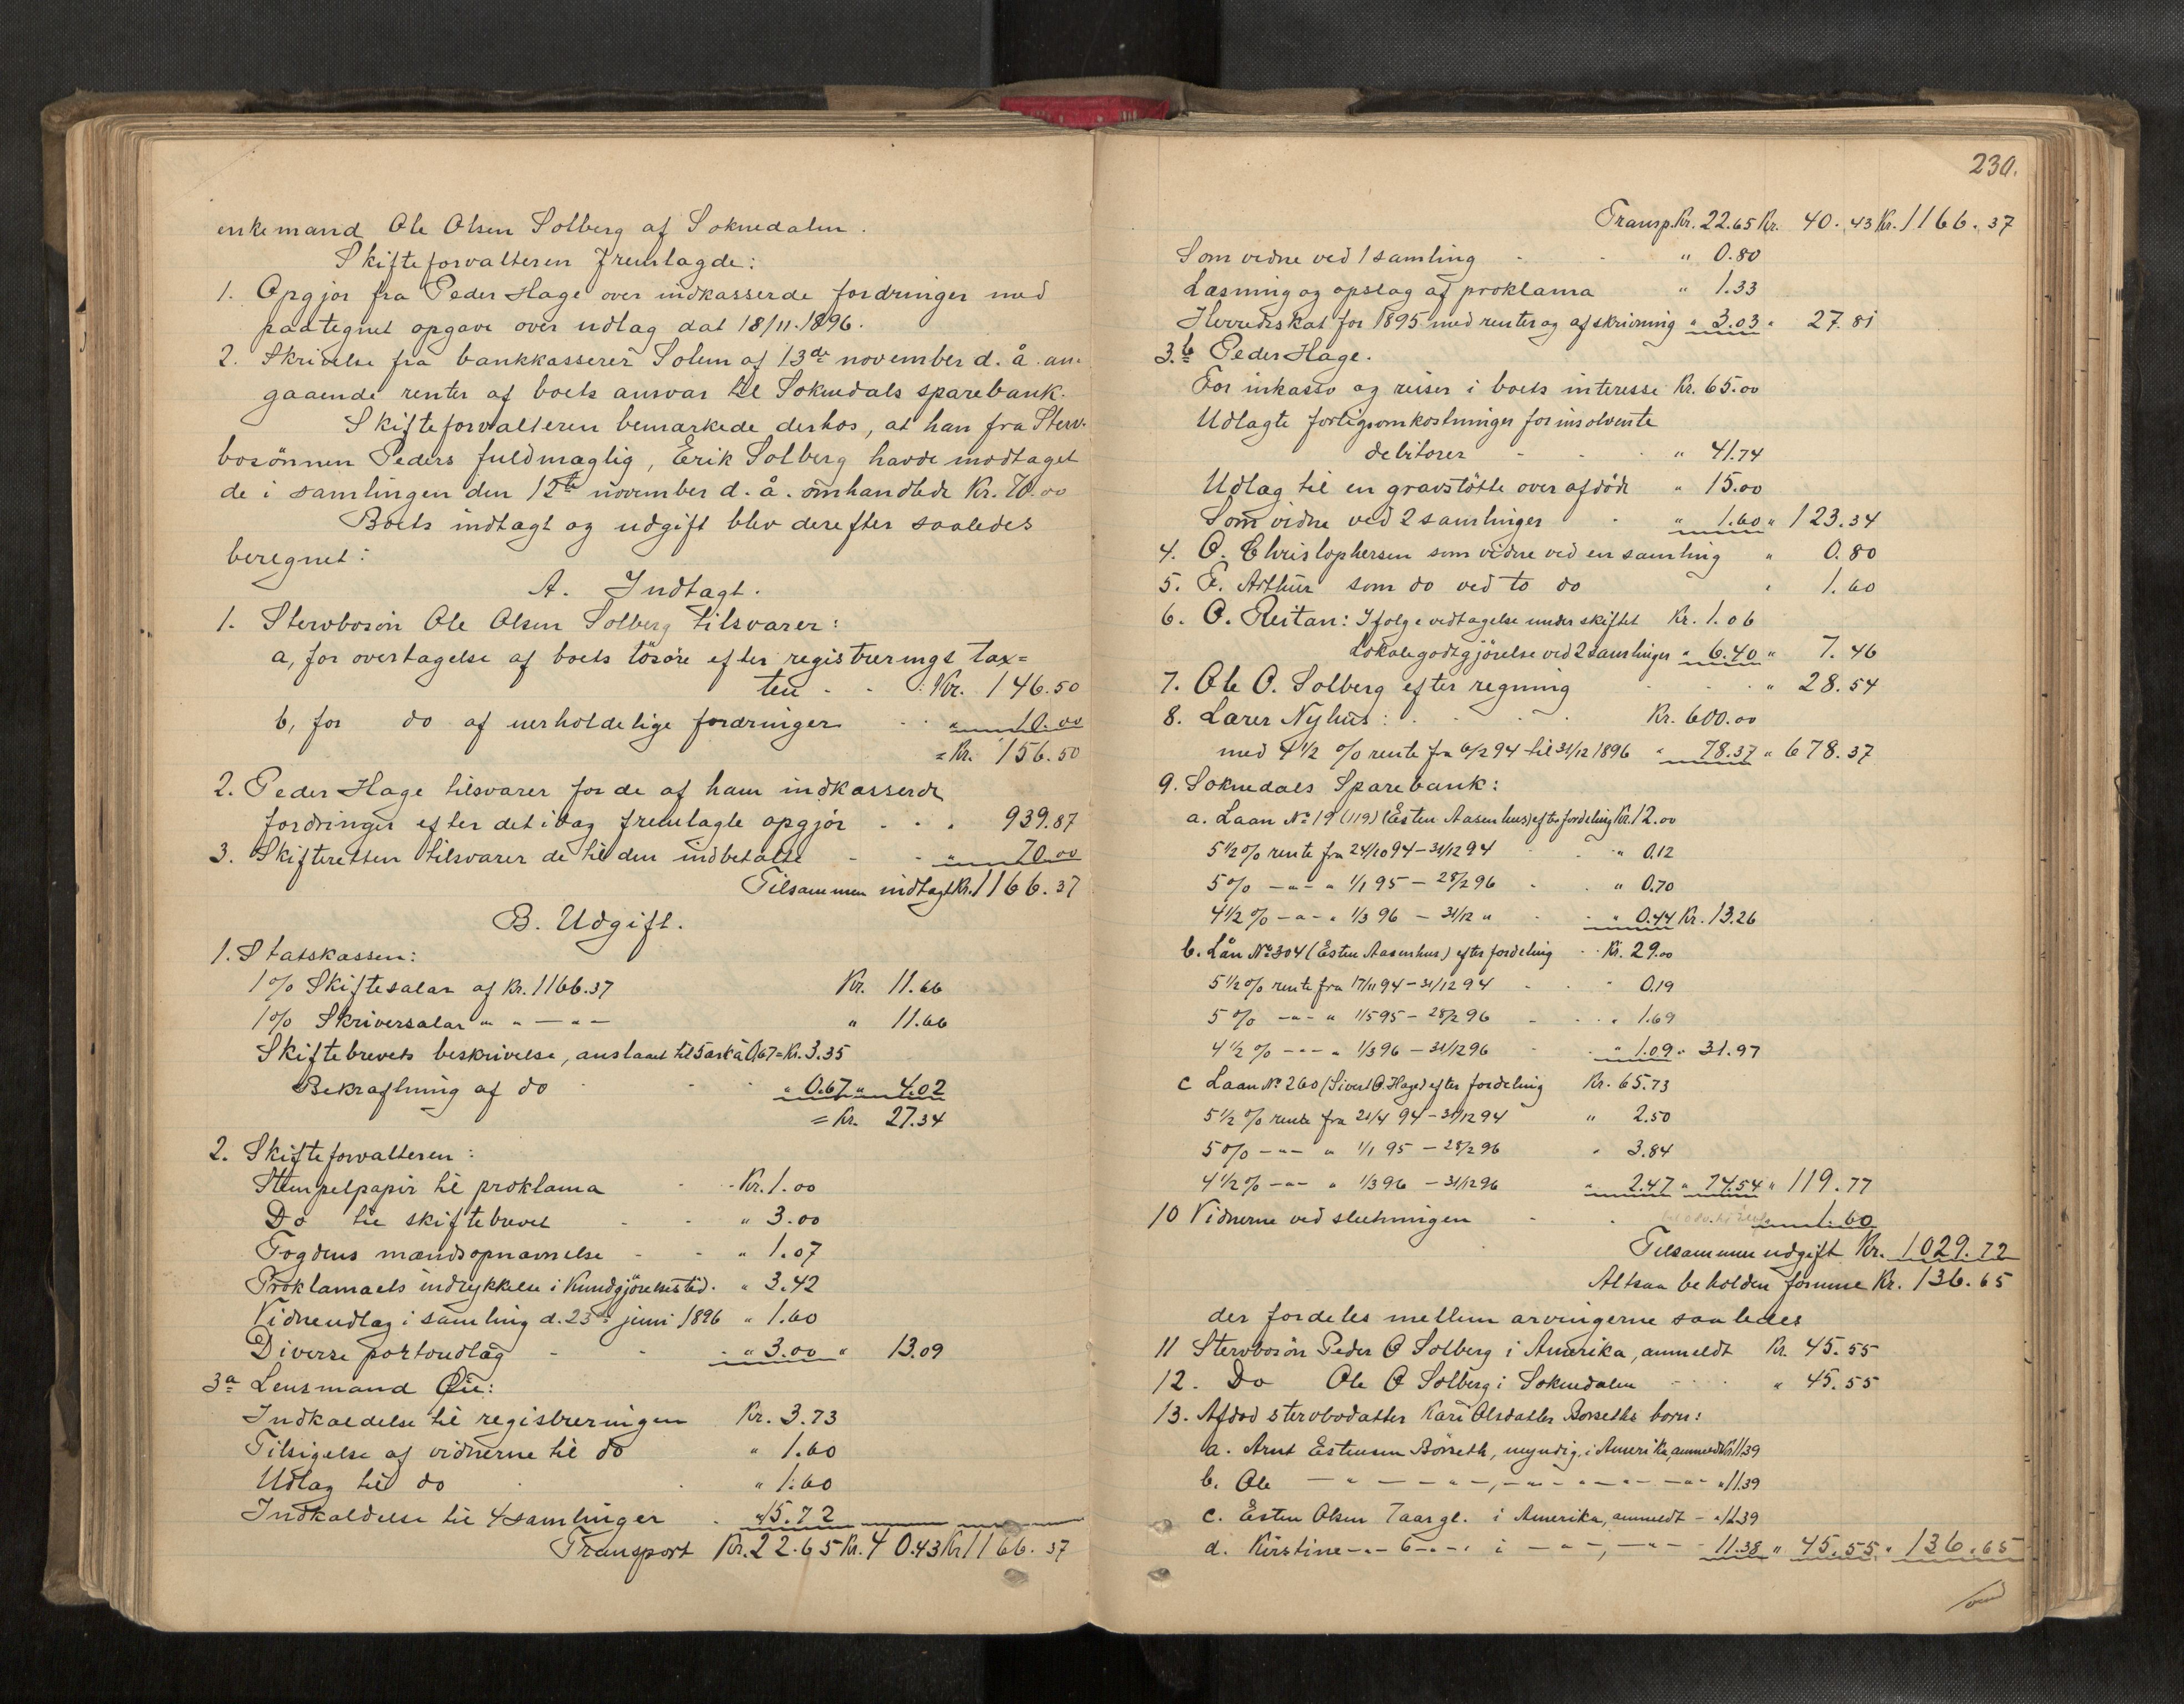 enkemand Ole Olsen Solberg af Soknedalen.
Skifteforvalteren fremlagde:
1. Opgjør fra Peder Hage over indkasserede fordringer med
paategnet opgave over udlag dat 18/11.1896.
2. Skrivelse fra bankkasserer Solem af 13de november d. å. an-
gaaende renter af boets ansvar til Soknedals sparebank.
Skifteforvalteren bemærkede derhos, at han fra Sterv-
bosönnen Peders fuldmægtig, Erik Solberg havde modtaget
de i samlingen den 12te november d. å. omhandlede Kr. 70.00
Boets indtægt og udgift blev derefter saaledes
beregnet:
A. Indtægt.
1. Stervbosön Ole Olsen Solberg tilsvarer:
a, for overtagelse af boets lösöre efter registreringstax=
ten - - : Kr. 146.50
b, for do af uerholdelige fordringer - - " 10.00
= Kr. 156.50
2. Peder Hage tilsvarer for de af ham indkasserede
fordringer efter det idag fremlagte opgjör - - . 939.87
3. Skifteretten tilsvarer de til den indbetalte - - " 70.00
Tilsammen indtægt Kr. 1166.37
B. Udgift.
1. Statskassen:
1% Skiftesalær af Kr. 1166.37 Kr. 11.66
1% Skriversalær " " — " — " 11.66
Skiftebrevets beskrivelse, anslaaet til 5 ark à 0,67 = Kr. 3.35
Bekræftning af do - - - " 0.67 " 4.02
= Kr. 27.34
2. Skifteforvalteren:
Stempelpapir til proklama - - Kr. 1.00
Do til skiftebrevet - - " 3.00
Fogdens mændsopnævnelse - - " 1.07
Proklamaets indrykkelse i Kundgjörelsestid. " 3.42
Vidneudlag i samling d. 23de juni 1896 " 1.60
Diverse portoudlæg - - - " 3.00 " 13.09
3a Lensmand Öie:
Indkaldelse til registreringen Kr. 3.73
Tilsigelse af vidnerne til do " 1.60
Udlæg til do " 1.60
Indkaldelse til 4 samlinger - " 15.72
Transport Kr. 22.65 Kr. 40.43 Kr. 1166.37
230.
Transp. Kr. 22.65 Kr. 40.43 Kr. 1166.37
Som vidne ved 1 samling - - " 0.80
Læsning og opslag af proklama " 1.33
Herredskat for 1895 med renter og afskrivning " 3.03 " 27.81
3.b Peder Hage.
For inkasso og reiser i boets interesse Kr. 65.00
Udlagte forligsomkostninger for insolvente
debitorer - - - " 41.74
Udlæg til en gravstötte over afdöde " 15.00
Som vidne ved 2 samlinger - " 1.60 " 123.34
4. O. Christophersen som vidne ved en samling " 0.80
5. F. Arthur som do ved to do " 1.60
6. O. Reitan: Ifølge vedtagelse under skiftet Kr. 1.06
Lokalegodtgjörelse ved 2 samlinger " 6.40 " 7.46
7. Ole O. Solberg efter regning - - - " 28.54
8. Lærer Nyhus: . . . . Kr. 600.00
med 4 1/2 % rente fra 6/2 94 til 31/12 1896 " 78.37 " 678.37
9. Soknedals Sparebank:
a. Laan No 19 (119) (Esten Aasenhus) efter fordeling Kr. 12.00
5 1/2 % rente fra 24/10 94 – 31/12 94 - - " 0.12
5 % — " — " 1/1 95 — 28/2 96 - . " 0.70
4 1/2 % — " — " 1/3 96 — 31/12 " - - " 0.44 Kr. 13.26
b. Lån No 304 (Esten Aasenhus) efter fordeling - - Kr. 29.00
5 1/2 % rente fra 17/11 94 – 31/12 94 - - " 0.19
5 % — " — " 1/1 95 – 28/2 96 - - - " 1.69
4 1/2 % — " — " 1/3 96 – 31/12 96 - " 1.09 " 31.97
c Laan No 260 (Sivert O. Hage) efter fordeling Kr. 65.73
5 1/2 % rente fra 21/4 94 – 31/12 94 " 2.50
5 % — " — " 1/1 95 – 28/2 96 " 3.84
4 1/2 % — " — " 1/3 96 – 31/12 96 " 2.47 " 74.54 " 119.77
10 Vidnerne ved slutningen - . 1.60
Tilsammen udgift Kr. 1029.72
Altsaa beholden somme Kr. 136.65
der fordeles mellem arvingerne saaledes
11 Stervbosön Peder O Solberg i Amerika, anmeldt Kr. 45.55
12. Do Ole O Solberg i Soknedalen - - - " 45.55
13. Afdød stervbodatter Kari Olsdatter Börseths börn:
a. Arnt Estensen Börseth, myndig, i Amerika, anmeldt Kr. 11.39
b. Ole — " — — " —, — " — " — " — " — — " — " 11.39
c. Esten Olsen 7 aar gl. i Amerika, anmeldt – " 11.39
d. Kirstine — " — 6 — " — " i — " —, — " — - 11.38 " 45.55 " 136.65